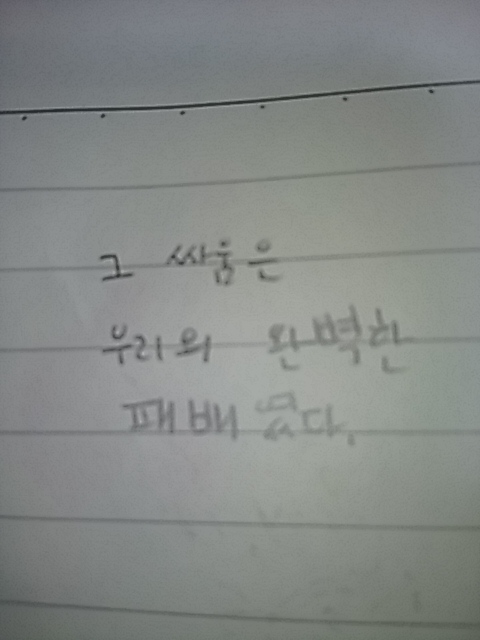 그 싸움은
우리의 완벽한
패배였다.